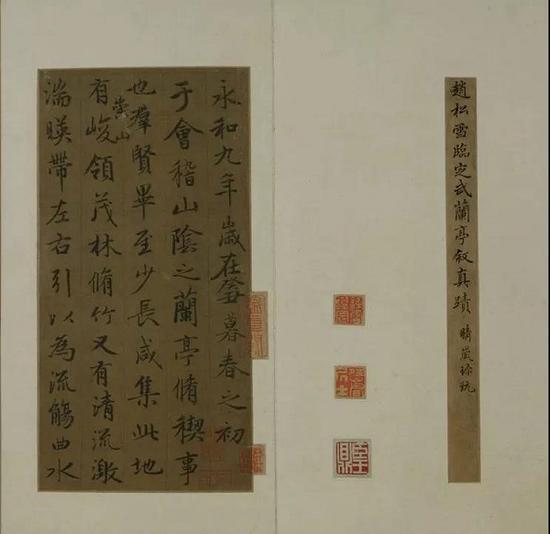 趙松雪臨定武蘭亭叙真蹟 晴嵐珍玩
永和九年歲在癸丑暮春之初會
于會稽山陰之蘭亭脩稧事
也羣賢畢至少長咸集此地
有崇山峻領茂林脩竹又有清流激
湍暎帶左右引以為流觴曲水